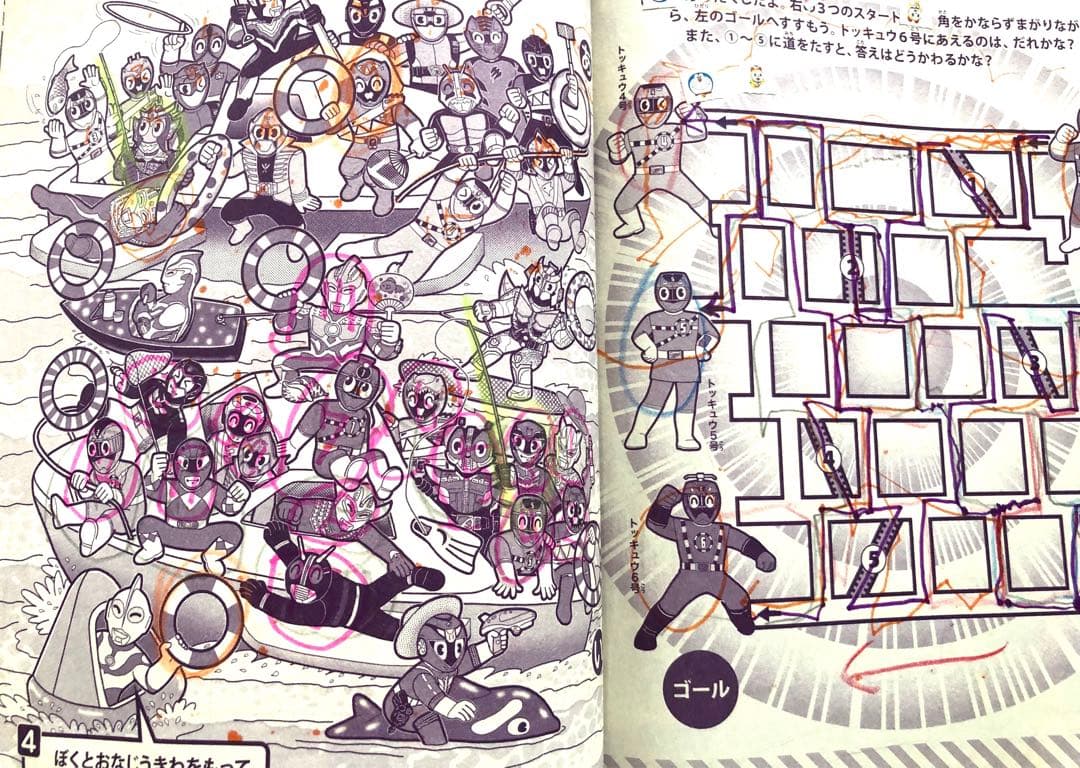 4
ぼくとおなじうきわをもって
くしたよ。右の3つのスタート 角をかならずまがりなが
ら、左のゴールへすすもう。トッキュウ6号にあえるのは、だれかな?
また、①～⑤に道をたすと、答えはどうかわるかな?
トッキュウ4号
1
2
トッキュウ5号
3
4
トッキュウ6号
5
ゴール